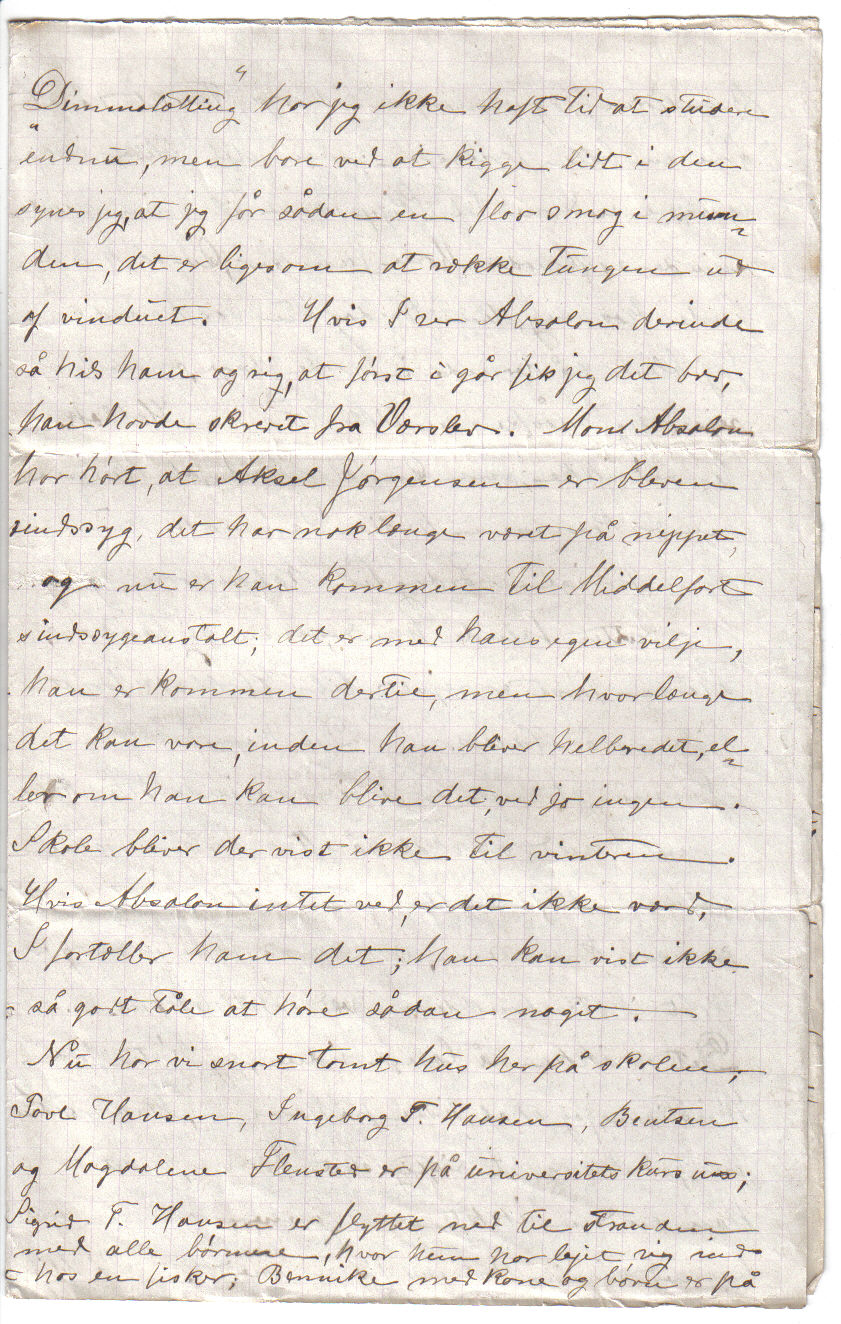 „Dimmalætting“ har jeg ikke haft tid at studere
endnu, men bare ved at kigge lidt i den
synes jeg, at jeg får sådan en flov smag i mun-
den, det er ligesom at række tungen ud
af vinduet. Hvis I ser Absalon derinde
så hils ham og sig, at først i går fik jeg det brev,
han havde skrevet fra Værslev. Mon Absalon
har hørt, at Aksel Jørgensen er bleven
sindssyg, det har nok længe været på nippet,
og nu er han kommen til Middelfart
sindssygeanstalt; det er med hans egen vilje,
han er kommen dertil, men hvor længe
det kan vare, inden han bliver helbredet, el-
ler om han kan blive det, ved jo ingen.
Skole bliver der vist ikke til vinteren.
Hvis Absalon intet ved, er det ikke værd,
I fortæller ham det; han kan vist ikke
så godt tåle at høre sådan noget.
Nu har vi snart tomt hus her på skolen,
Povl Hansen, Ingeborg P. Hansen, Bentsen
og Magdalene Flensted er på universitetskursus;
Sigrid P. Hansen er flyttet ned til stranden
med alle børnene, hvor hun har lejet sig ind
hos en fisker; Bennike med kone og børn er på